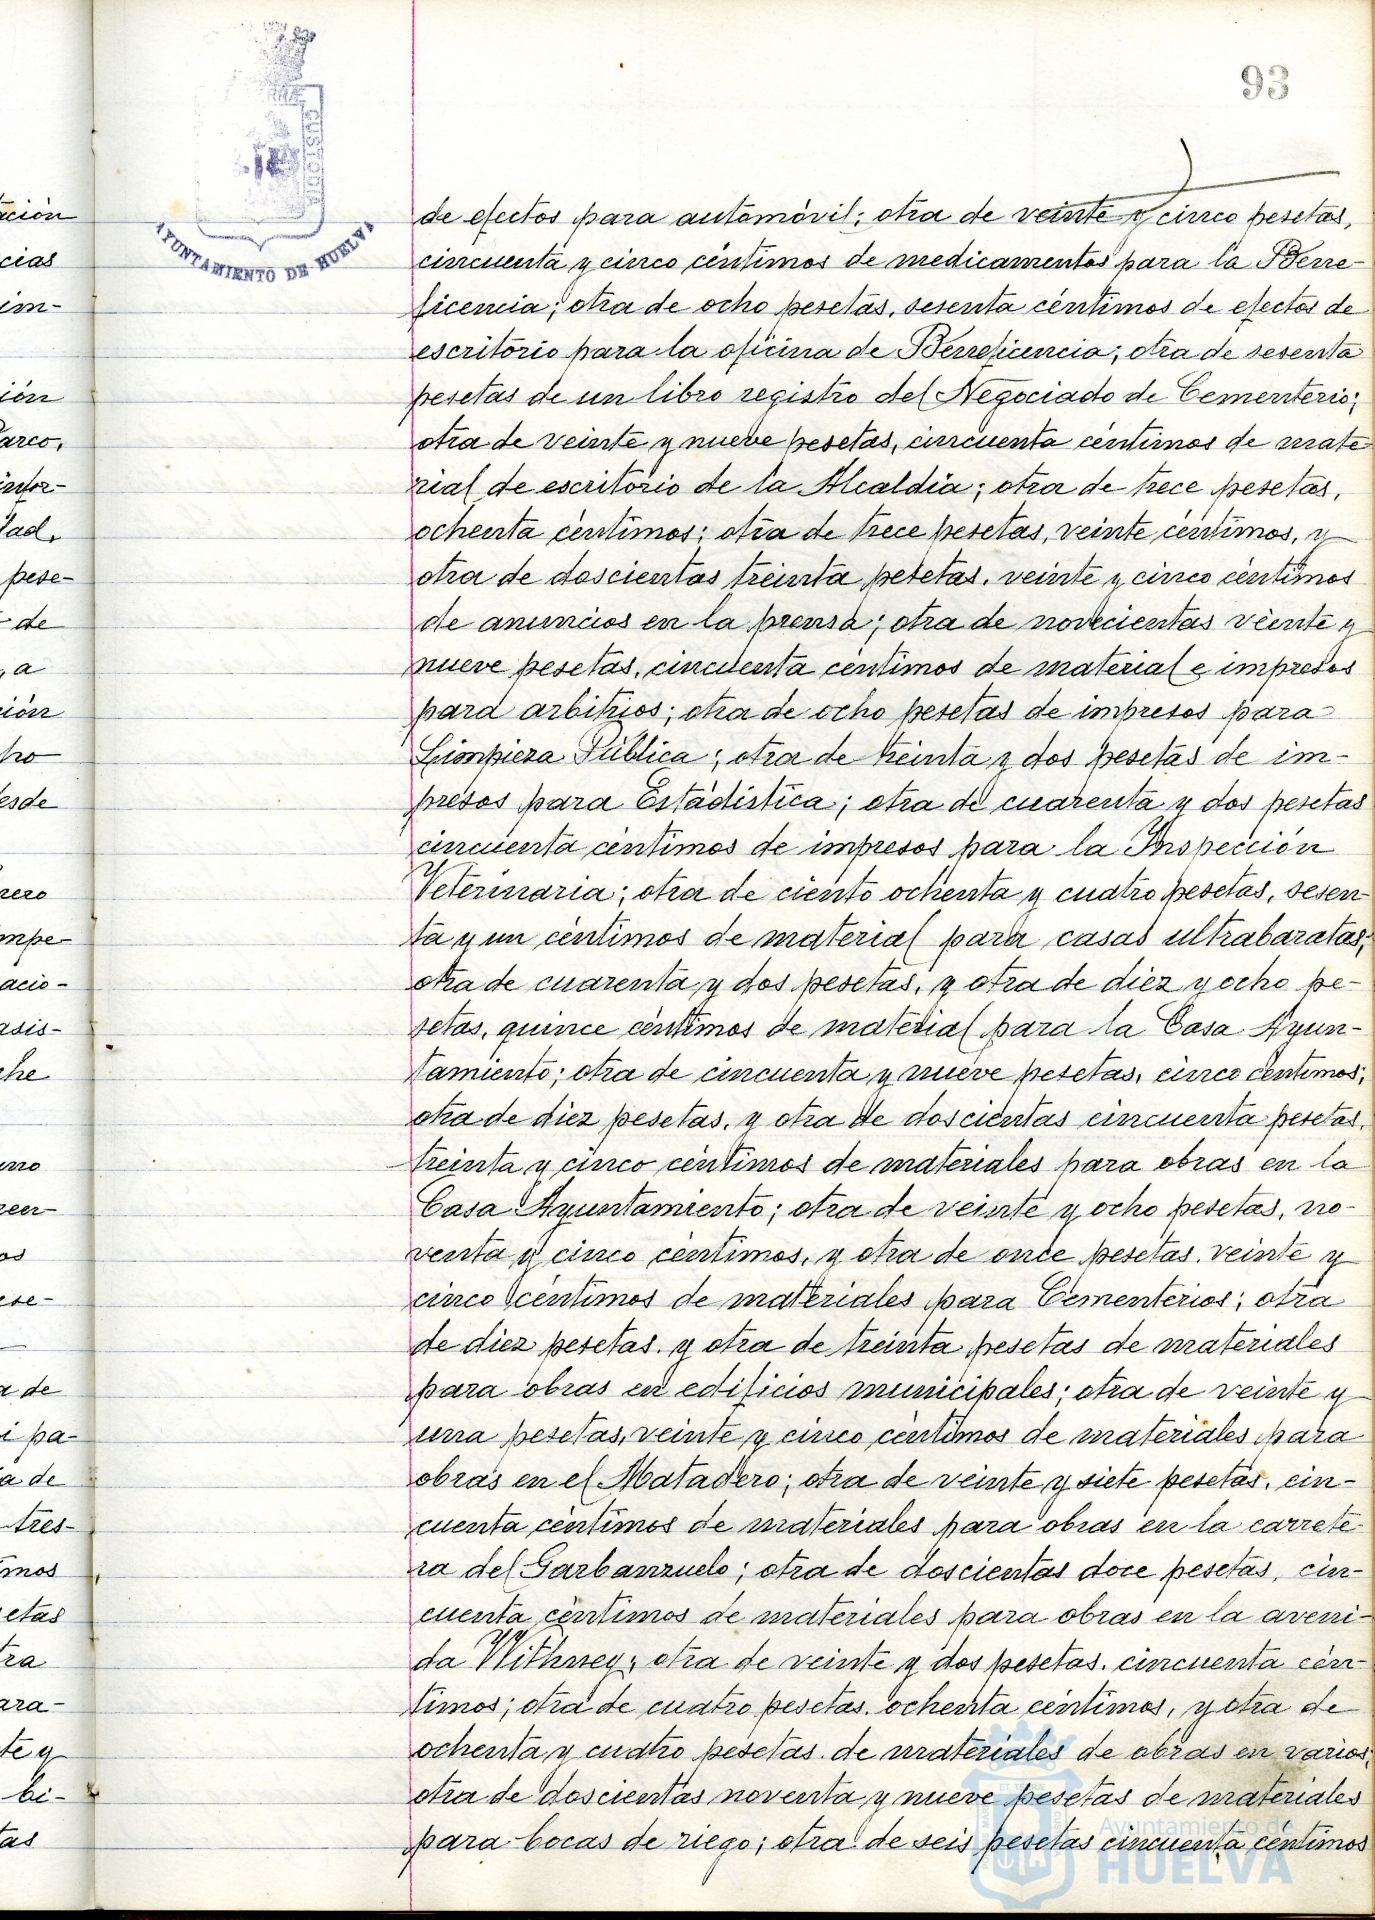 93
CUSTODIA
AYUNTAMIENTO DE HUELVA
ación
cias
im-
ión
arco,
infor-
dad,
pese-
de
, a
ción
ho
esde
rero
mpe-
acio-
asis-
che
uno
reen-
os
ese-
a de
i pa-
a de
tres-
imos
setas
tra
ara-
te y
bi-
tas
de efectos para automóvil; otra de veinte y cinco pesetas,
cincuenta y cinco céntimos de medicamentos para la Bene-
ficencia; otra de ocho pesetas, sesenta céntimos de efectos de
escritorio para la oficina de Beneficencia; otra de sesenta
pesetas de un libro registro del Negociado de Cementerio;
otra de veinte y nueve pesetas, cincuenta céntimos de mate-
rial de escritorio de la Alcaldía; otra de trece pesetas,
ochenta céntimos; otra de trece pesetas, veinte céntimos, y
otra de doscientas treinta pesetas, veinte y cinco céntimos
de anuncios en la prensa; otra de novecientas veinte y
nueve pesetas, cincuenta céntimos de material e impresos
para arbitrios; otra de ocho pesetas de impresos para
Limpieza Pública; otra de treinta y dos pesetas de im-
presos para Estadística; otra de cuarenta y dos pesetas
cincuenta céntimos de impresos para la Inspección
Veterinaria; otra de ciento ochenta y cuatro pesetas, sesen-
ta y un céntimos de material para casas ultrabaratas;
otra de cuarenta y dos pesetas, y otra de diez y ocho pe-
setas, quince céntimos de material para la Casa Ayun-
tamiento; otra de cincuenta y nueve pesetas, cinco céntimos;
otra de diez pesetas, y otra de doscientas cincuenta pesetas,
treinta y cinco céntimos de materiales para obras en la
Casa Ayuntamiento; otra de veinte y ocho pesetas, no-
venta y cinco céntimos, y otra de once pesetas, veinte y
cinco céntimos de materiales para Cementerios; otra
de diez pesetas, y otra de treinta pesetas de materiales
para obras en edificios municipales; otra de veinte y
una pesetas, veinte y cinco céntimos de materiales para
obras en el Matadero; otra de veinte y siete pesetas, cin-
cuenta céntimos de materiales para obras en la carrete-
ra del Garbanzuelo; otra de doscientas doce pesetas, cin-
cuenta céntimos de materiales para obras en la aveni-
da Withney; otra de veinte y dos pesetas, cincuenta cén-
timos; otra de cuatro pesetas, ochenta céntimos, y otra de
ochenta y cuatro pesetas de materiales de obras en varios;
otra de doscientas noventa y nueve pesetas de materiales
para bocas de riego; otra de seis pesetas cincuenta céntimos
Ayuntamiento de
HUELVA